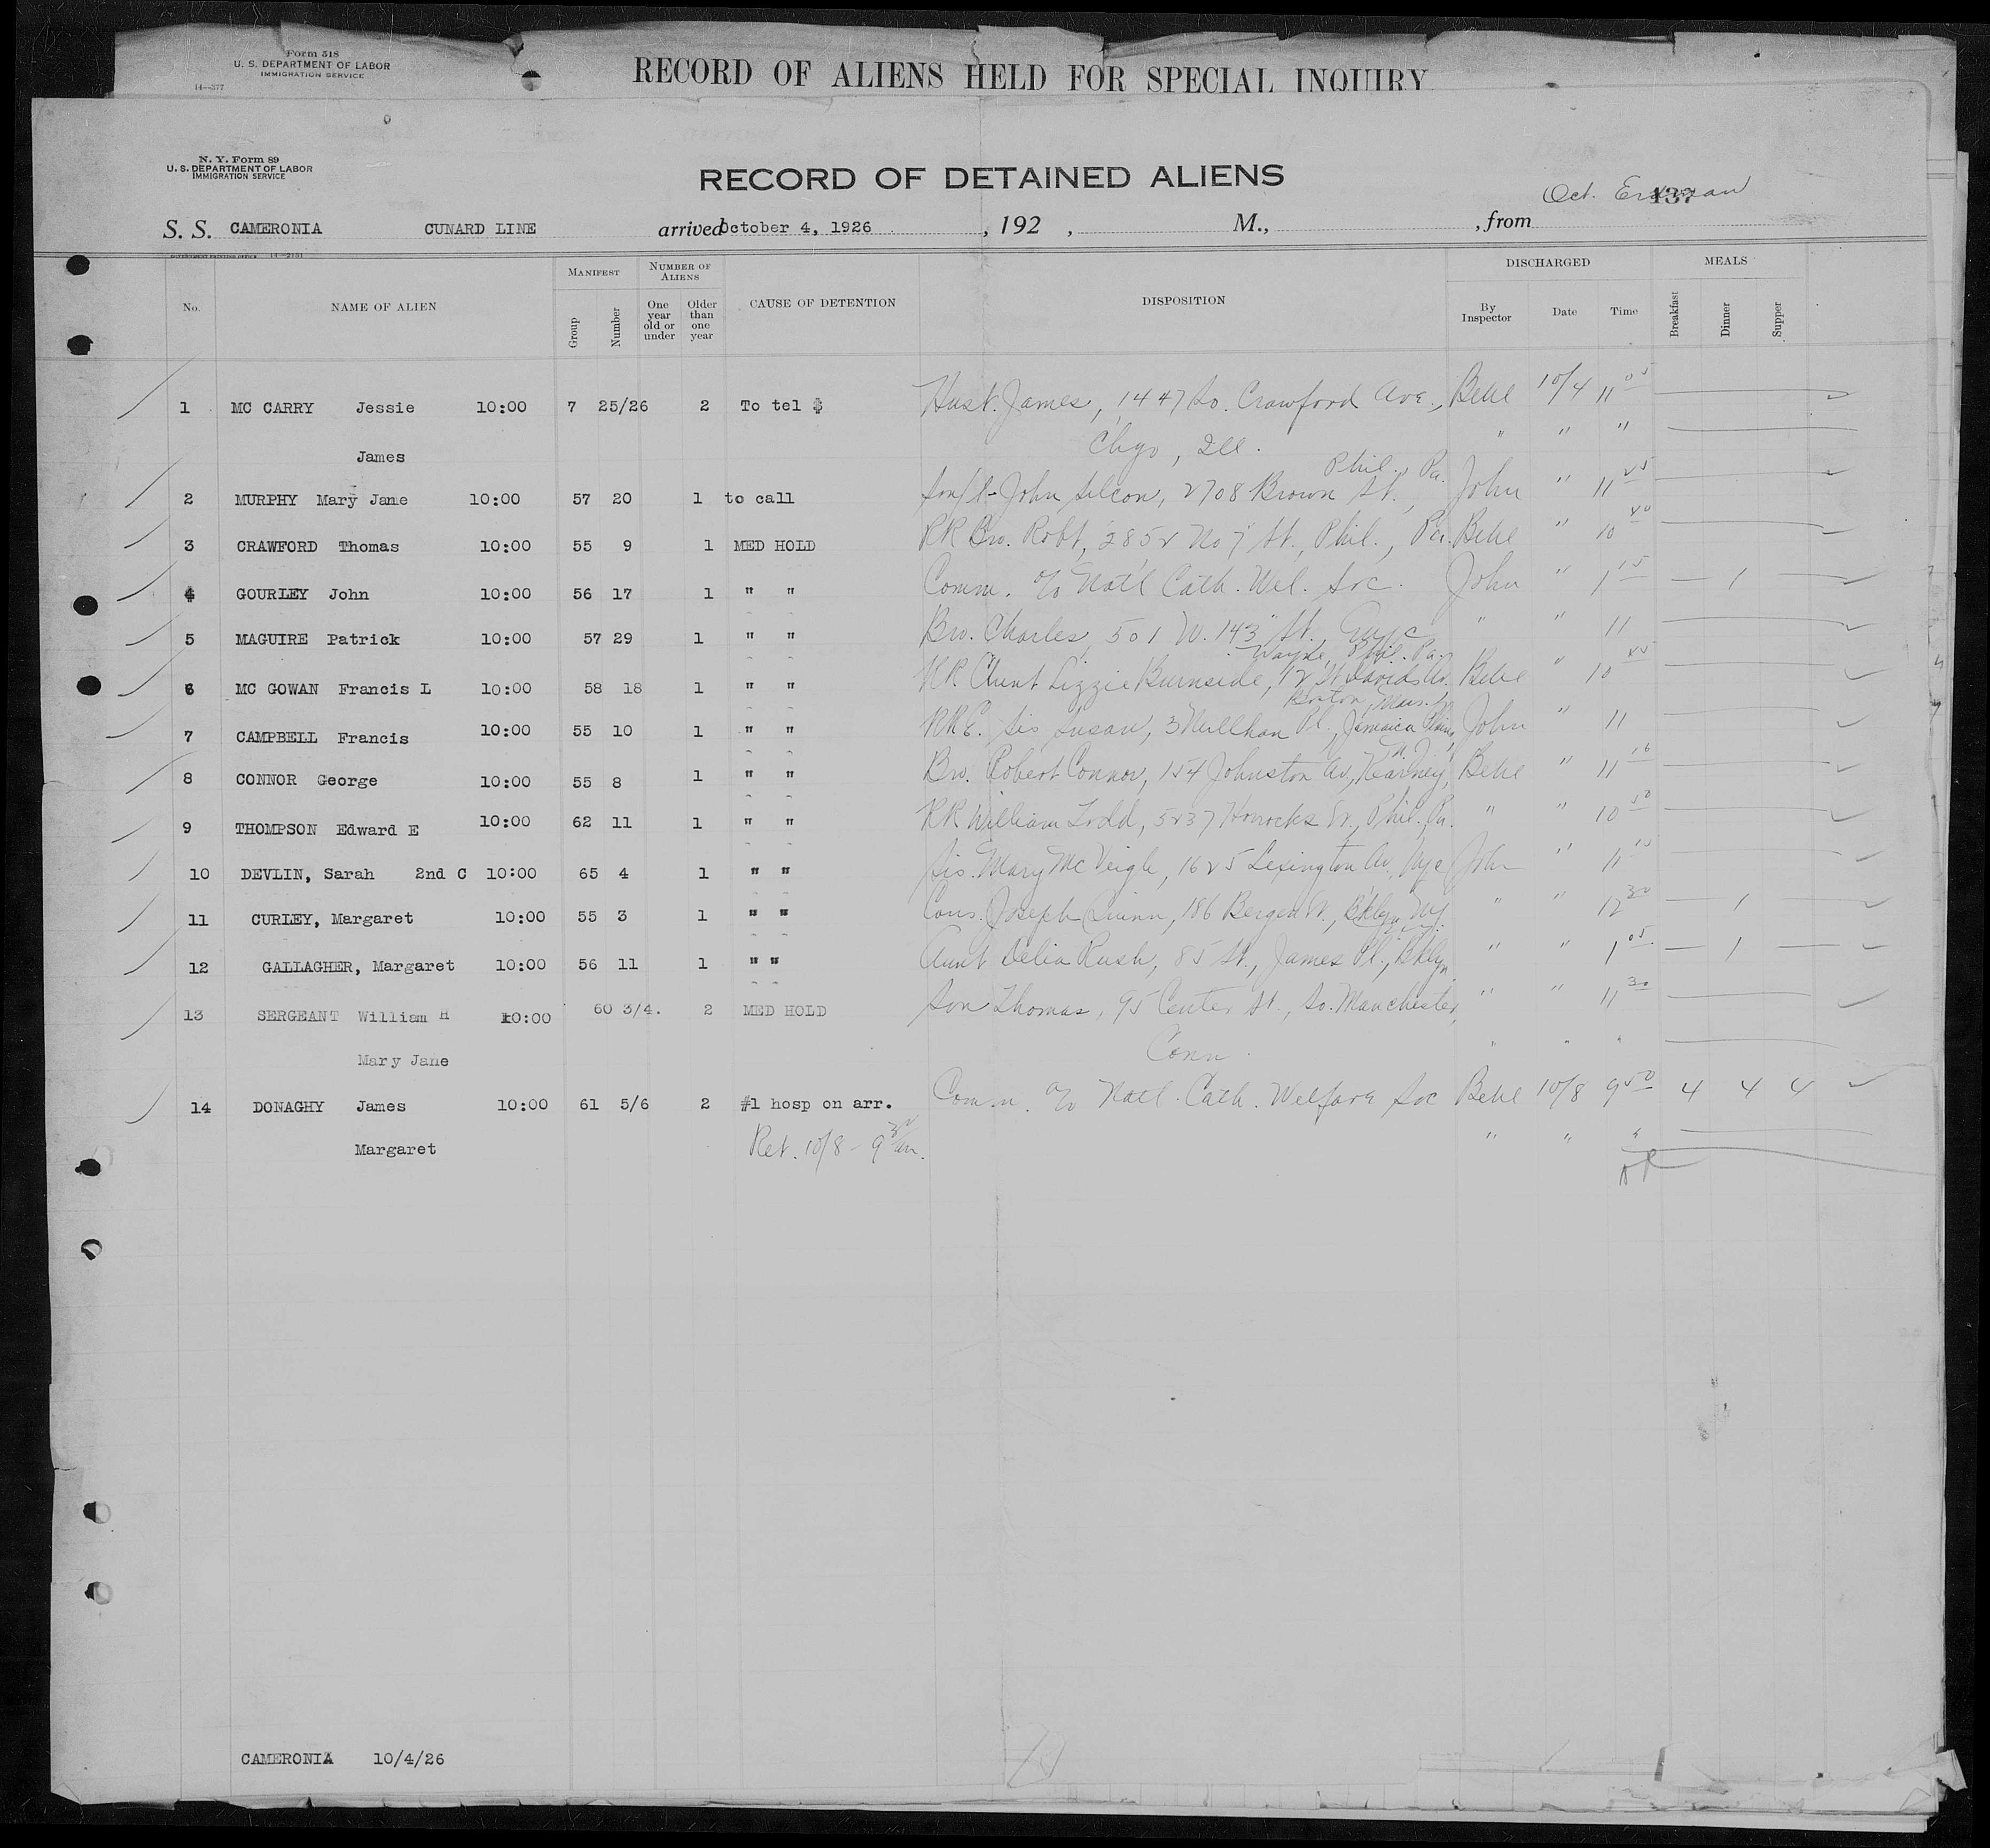 Form 518
U. S. DEPARTMENT OF LABOR
IMMIGRATION SERVICE
14—377
RECORD OF ALIENS HELD FOR SPECIAL INQUIRY
N. Y. Form 89
U. S. DEPARTMENT OF LABOR
IMMIGRATION SERVICE
RECORD OF DETAINED ALIENS
Oct. 137
S. S. CAMERONIA CUNARD LINE arrived October 4, 1926 , 192 , M., , from
GOVERNMENT PRINTING OFFICE 14—2151
No. NAME OF ALIEN MANIFEST Group Number NUMBER OF ALIENS One year old or under Older than one year CAUSE OF DETENTION DISPOSITION DISCHARGED By Inspector Date Time MEALS Breakfast Dinner Supper
1 MC CARRY Jessie 10:00 7 25/26 2 To tel $ Husb. James, 1447 So. Crawford Ave., Behe 10/4 11 05
James Chgo, Ill. " " "
2 MURPHY Mary Jane 10:00 57 20 1 to call John 2708 Brown St., Phil., Pa. John " 11 25
3 CRAWFORD Thomas 10:00 55 9 1 MED HOLD RR Bro. Robt, 2852 No 7 St., Phil., Pa. Behe " 10 40
4 GOURLEY John 10:00 56 17 1 " " Comm. c/o Nat'l Cath. Wel. Soc. John " 1 15 1
5 MAGUIRE Patrick 10:00 57 29 1 " " Bro. Charles, 501 W. 143" St., Nyc " " 11
6 MC GOWAN Francis L 10:00 58 18 1 " " RR. Aunt Lizzie Burnside, 12 St Davids Av. Wayne, Phil. Pa. Behe " 10 45
7 CAMPBELL Francis 10:00 55 10 1 " " RRE. Sis Susan, 3 Pl., Jamaica Plains, Boston, Mass. John " 11
8 CONNOR George 10:00 55 8 1 " " Bro. Robert Connor, 154 Johnston Av., Kearney, N.J. Behe " 11 16
9 THOMPSON Edward E 10:00 62 11 1 " " RR William Todd, 5237 Horrocks St., Phil., Pa. " " 10 50
10 DEVLIN, Sarah 2nd C 10:00 65 4 1 " " Sis. Mary Mc Veigh, 1625 Lexington Av, Nyc John " 11 15
11 CURLEY, Margaret 10:00 55 3 1 " " Cous. Joseph Quinn, 186 Bergen St., Bklyn Ny. " " 12 30 1
12 GALLAGHER, Margaret 10:00 56 11 1 " " Aunt Delia Rush, 85 St., James Pl., Bklyn " " 1 05 1
13 SERGEANT William H 10:00 60 3/4. 2 MED HOLD Son Thomas, 95 Center St., So. Manchester, " " 11 30
Mary Jane Conn. " " "
14 DONAGHY James 10:00 61 5/6 2 #1 hosp on arr. Comm. c/o Natl. Cath. Welfare Soc Behe 10/8 9 50 4 4 4
Margaret Ret. 10/8 - 9 30 am. " " "
CAMERONIA 10/4/26